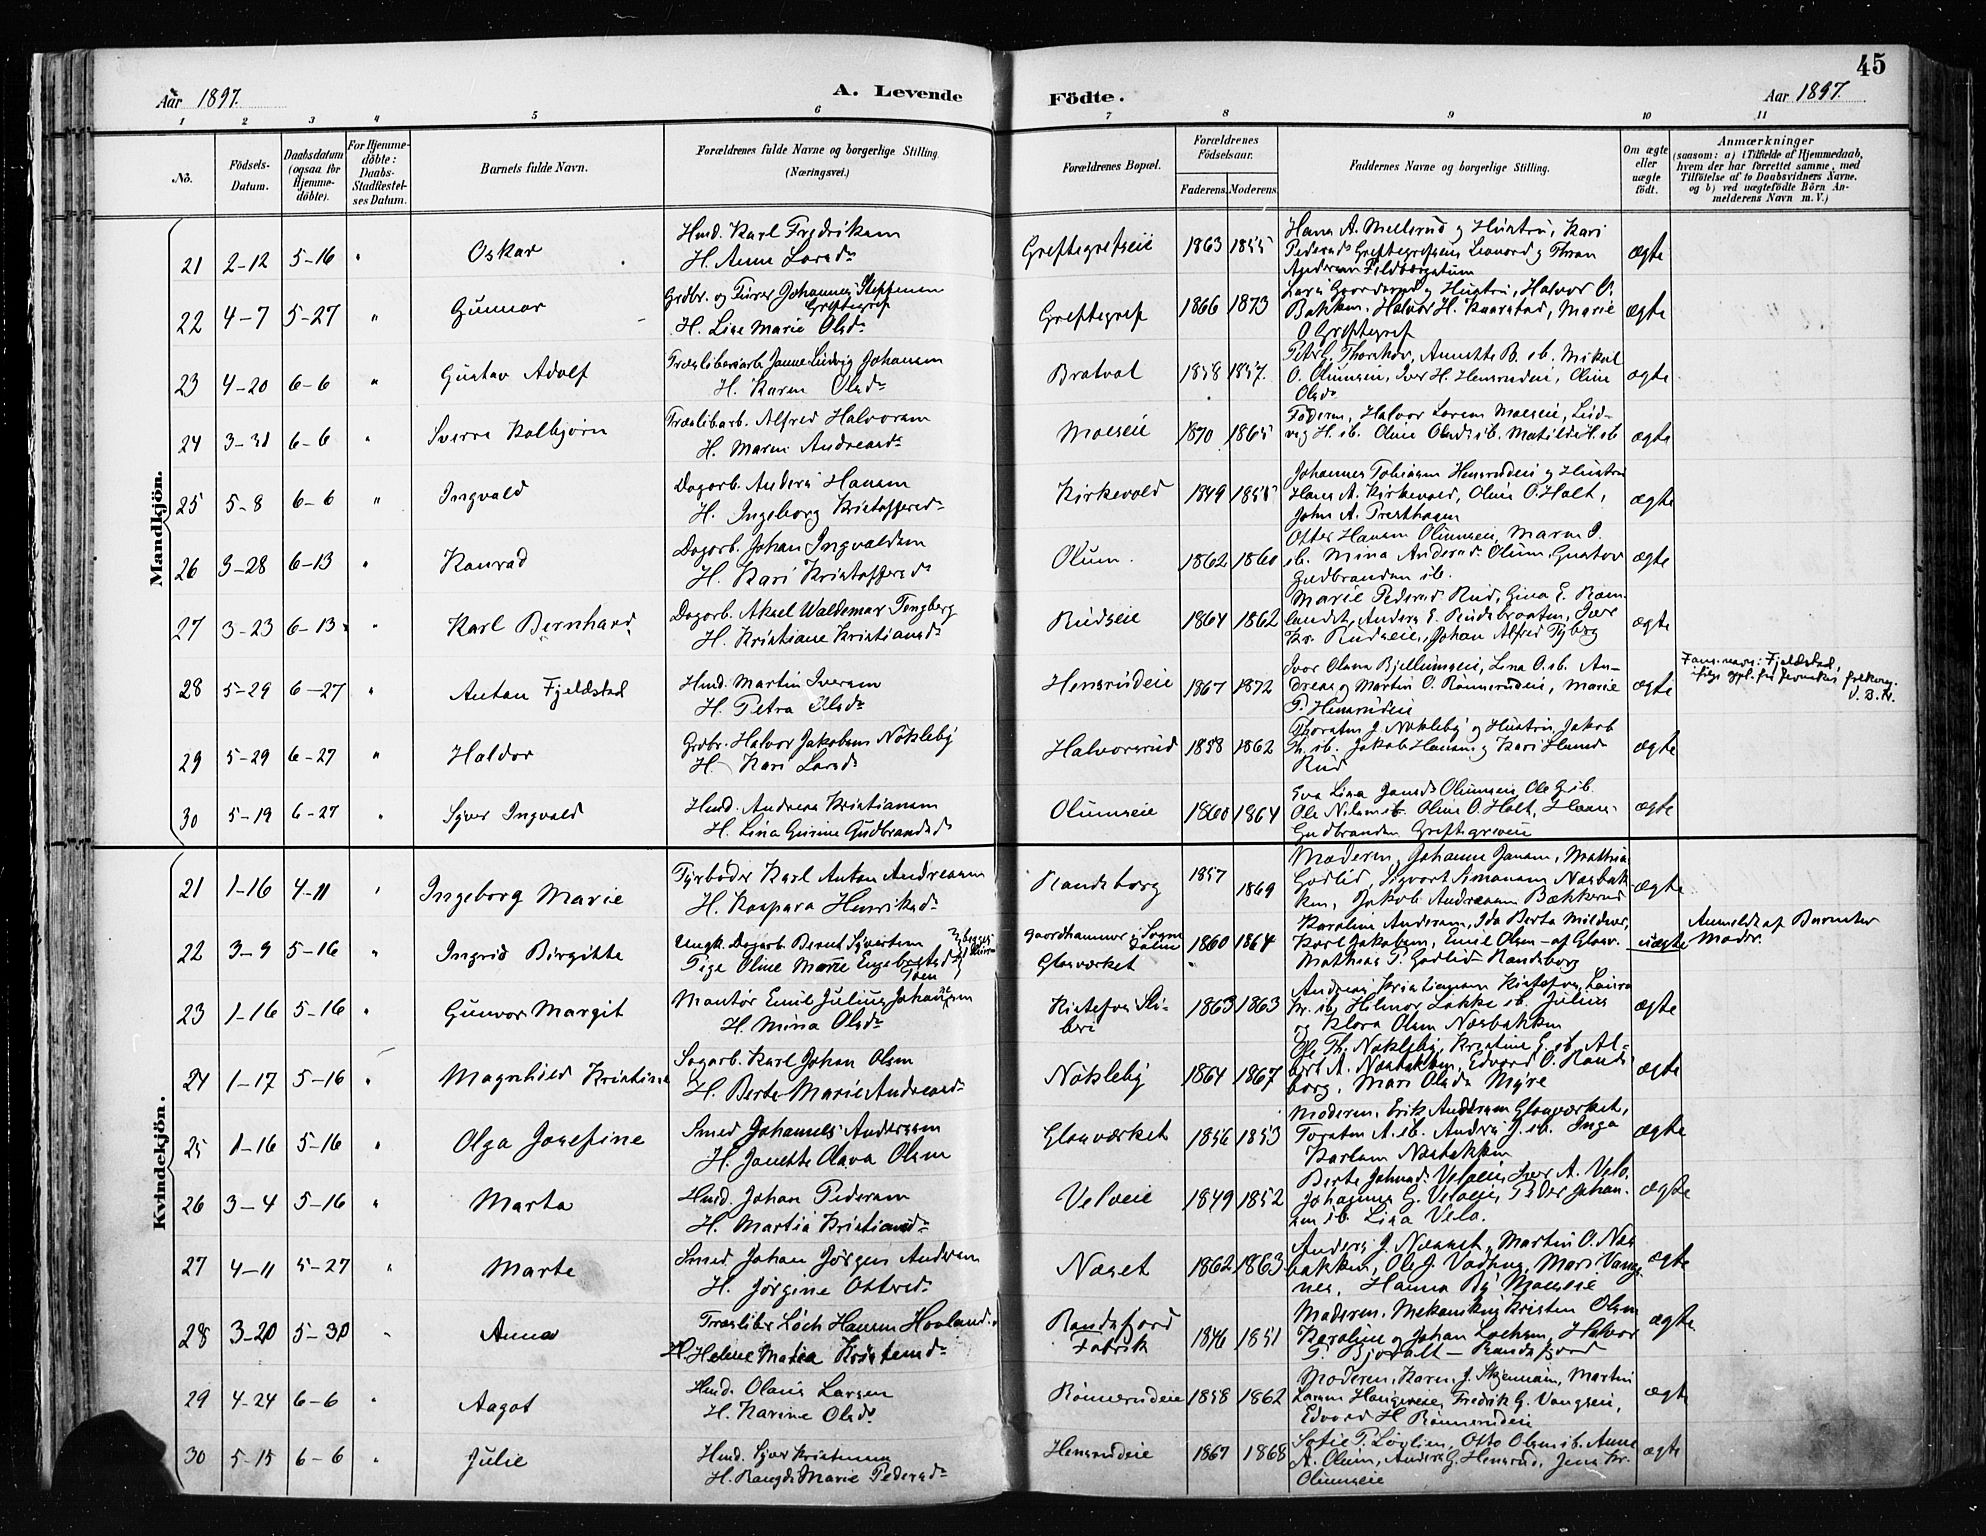 45
Aar 1897.
A. Levende
Födte.
Aar 1897.
1 2 3 4 5 6 7 8 9 10 11
No.
Födsels-
Datum.
Daabsdatum
(ogsaa for
Hjemme-
döbte).
For Hjemme-
döbte:
Daabs-
Stadfæstel-
ses Datum.
Barnets fulde Navn.
Forældrenes fulde Navne og borgerlige Stilling
(Næringsvei.)
Forældrenes Bopæl.
Forældrenes
Födselsaar.
Faderens. Moderens.
Faddernes Navne og borgerlige Stilling.
Om ægte
eller
uægte
födt.
Anmærkninger
(saasom: a) i Tilfælde af Hjemmedaab,
hvem der har forrettet samme, med
Tilföielse af to Daabsvidners Navne,
og b) ved uægtefödte Börn An-
melderens Navn m. V.)
Mandkjön.
21 2-12 5-16 " Oskar
Hmd. Karl Fredriksen
H. Anne Larsdr
Greftegrefseie 1863 1855
Hans A. Mellerud og Hustru, Kari
ægte
22 4-7 5-27 " Gunnar
Grdbr. og Furer Johannes Steffensen
Greftegref
H. Lise Marie Olsdr
Greftegref 1866 1873
Bakken. Halvor H. Kaarstad, Marie
O Greftegref
ægte
23 4-20 6-6 " Gustav Adolf
Træsliberiarb. Janne Ludvig Johansen
H. Karen Olsdr
Bratval 1858 1857.
O. Olumseie, Iver H. Hensrudeie, Oline
Olsdr
ægte
24 3-31 6-6 " Sverre Kolbjörn
Træslibarb. Alfred Halvorsen
H. Maren Andreasdr
Moeseie 1870 1865
Faderen, Halvor Larsen Moeseie, Lud-
vig H. sb. Oline Olsdr sb. Matilde H. sb
ægte
25 5-8 6-6 " Ingvald
Dagarb. Anders Hansen
H. Ingeborg Kristoffersdr
Kirkevold 1849 1855
Johannes Tobiasen Hensrudeie og Hustru
Hans A. Kirkevold, Oline O. Holt,
John A. Presthagen
ægte
26 3-28 6-13 " Konrad
Dagarb. Johan Ingvaldsen
H. Kari Kristoffersdr
Olum. 1862 1860
Otter Hansen Olumseie, Maren O.
sb. Mina Andersdr Olum, Gustav
Gudbrandsen sb.
ægte
27 3-23 6-13 " Karl Bernhard
Dagarb. Aksel Waldemar Tengberg
H. Kristiane Kristiansdr
Rudseie 1864 1862
Marie Pedersdr Rud, Gina E. Ram-
landst, Anders E. Rudsbraaten, Iver
Kr. Rudseie, Johan Alfred Fyberg
ægte
28 5-29 6-27 " Anton Fjeldstad
Hmd. Martin Iversen
H. Petra Olsdr
Hensrudeie 1867 1872
Ivar Olsen Bjellumseie, Lina O. sb. An-
dreas og Martin O. Rönnerudeie, Marie
P. Hensrudeie
ægte
Fam.navn: Fjeldstad,
29 5-29 6-27 " Haldor
Grdbr. Halvor Jakobsen Nöklebÿ
H. Kari Larsdr
Halvorsrud 1858 1862
Thorsten J. Nöklebÿ og Hustru, Jakob
Th. sb. Jakob Hansen og Kari Hansdr
Rud
ægte
30 5-19 6-27 " Syver Ingvald
Hmd. Andreas Kristiansen
H. Lina Gurine Gudbrandsdr
Olumseie 1860 1864
Eva Lina Jansdr Olumseie Ole G. sb.
Ole Nilsen sb. Oline O. Holt, Hans
Gudbrandsen Greftegrefseie
ægte
Kvindekjön.
21 1-16 4-11 " Ingeborg Marie
Fyrböder Karl Anton Andreasen
H. Kaspara Henriksdr
Randsborg 1857 1869
Moderen, Johanne Jansen, Mathias
Godlid, Sigvart Simensen Næsbak-
ken, Jakob Andreassen Bækkerud
ægte
22 3-9 5-16 " Ingrid Birgitte
Ungk. Dagarb. Bernt Syvertsen
Pige Oline Marie Engebretsdr
Gaardhammer i Sogndalen
Glasværket 1860 1864
Karoline Andersen, Ida Berta Mildner,
Karl Jakobsen, Emil Olsen - af Glasv.
Mathias P. Godlid - Randsborg
uægte
Anmeldt af Barnets
Moder.
23 1-16 5-16 " Gunvor Margit
Montör Emil Julius Johansen
H. Mina Olsdr
Kistefos Sli-
beri 1863 1863
Andreas Kristiansen Kistefos, Laura
Kr. sb, Hilmar Løkke sb, Julius
og Klara Olsen Næsbakken
ægte
24 1-17 5-16 " Magnhild Kristine
Sagarb. Karl Johan Olsen
H. Berte Marie Andreasdr
Nöklebÿ 1864 1867
Ole Th. Nöklebÿ, Kristine E. sb. Al-
bert A. Næsbakken, Edvard O. Rands-
borg, Mari Olsdr Myre
ægte
25 1-16 5-16 " Olga Josefine
Smed Johannes Andersen
H. Janette Olava Olsen
Glasværket 1856 1853
Moderen, Erik Andersen Glasværket,
Torsten A. sb. Anders J. sb. Inga
Karlsen Næsbakken
ægte
26 3-4 5-16 " Marta
Hmd. Johan Pedersen
H. Martia Kristiansdr
Velseie 1849 1852
Berte Johnsdr Velseie, Iver A. Velo,
Johannes G. Velseie, Peder Johan-
sen sb. Lina Velo.
ægte
27 4-11 5-27 " Marte
Smed Johan Jörgen Andersen
H. Jörgine Ottersdr
Næset 1862 1863
Anders J. Næsset, Martin O. Næs-
bakken, Ole J. Vadhus, Mari Vang-
nes, Hanna By Moeseie
ægte
28 3-20 5-30 " Anna
Træslibr Loch Hansen Hovland.
H. Helene Matea Kristensdr
Randsfjord
Fabrik 1846 1851
Moderen. Mekanikus Kristen Olsen
Karoline og Johan Lochsen, Halvor
P. Bjödalt - Randsfjord
ægte
29 4-24 6-6 " Aagot
Hmd. Olaus Larsen
H. Karine Olsdr
Rönnerudeie 1858 1862
Moderen, Karen J. Skjennum, Martin
Larsen Haugseie, Fredrik G. Vangseie,
Edvard H. Rönnerudeie
ægte
30 5-15 6-6 " Julie
Hmd. Syver Kristensen
H. Rangdi Marie Pedersdr
Hensrudeie 1867 1868
Sofie P. Lövlien, Otto Olsen sb. Anne
A. Olum, Anders G. Hensrud, Jens Kr.
Olumseie
ægte